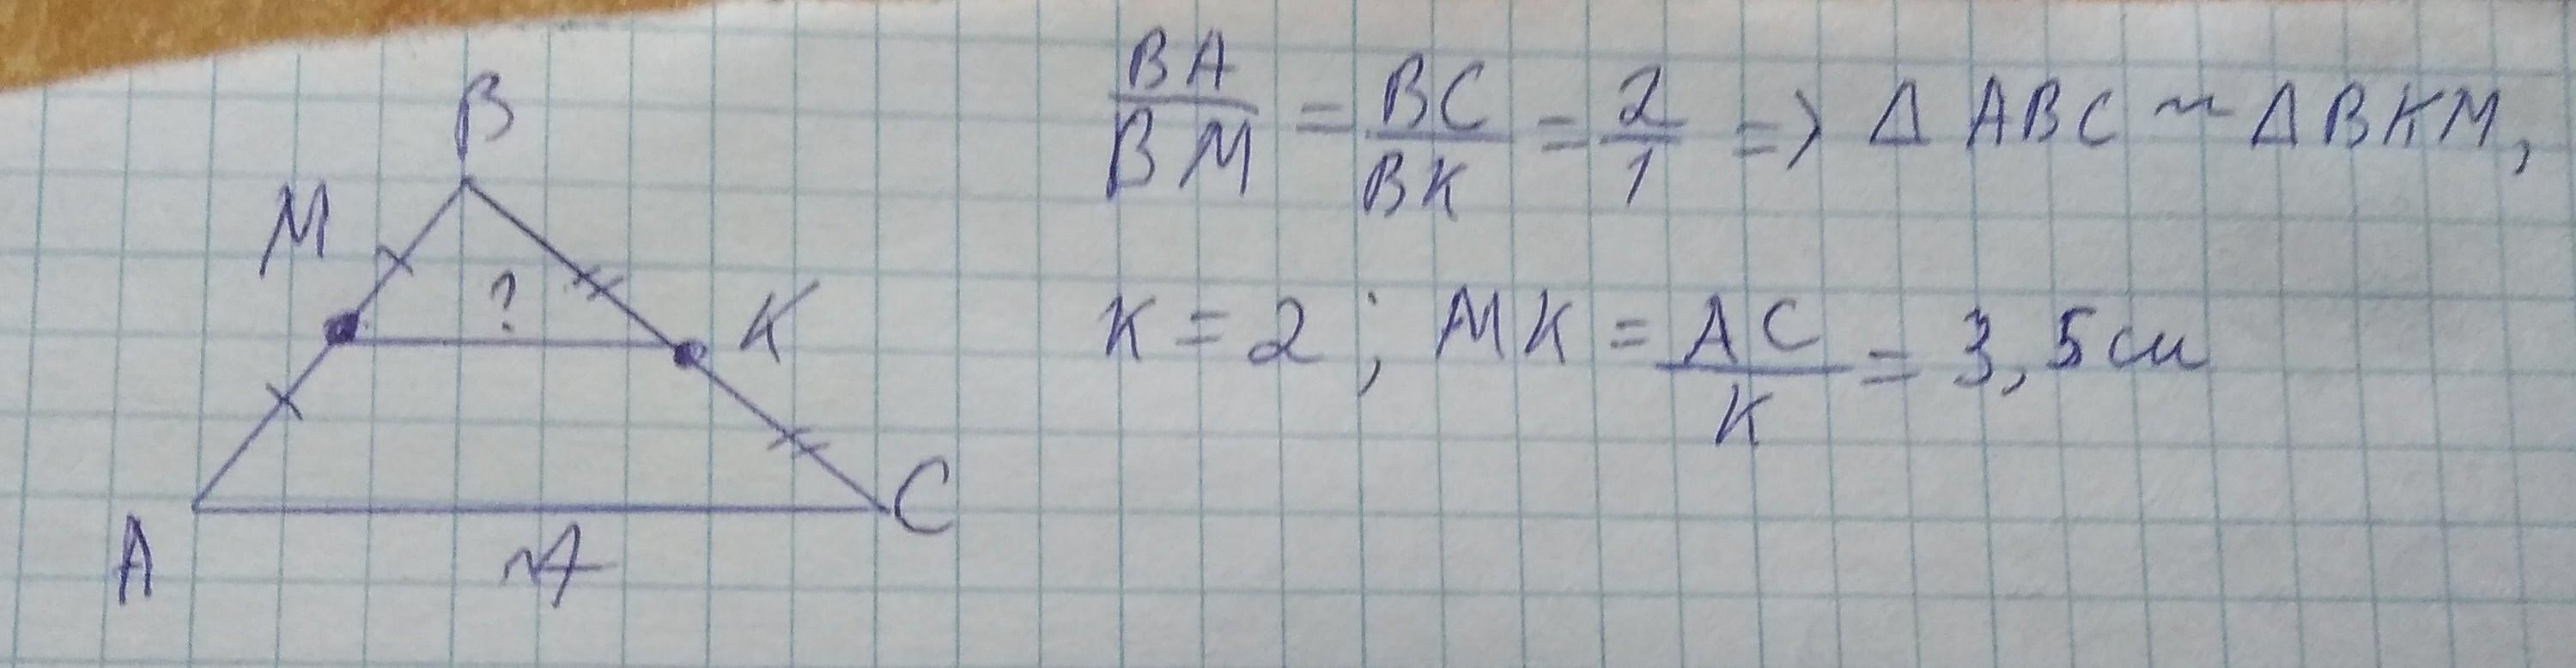 B
M
?
K
A
C
7
BA/BM = BC/BK = 2/1 => Δ ABC ~ Δ BKM,
K = 2; MK = AC/K = 3,5 см